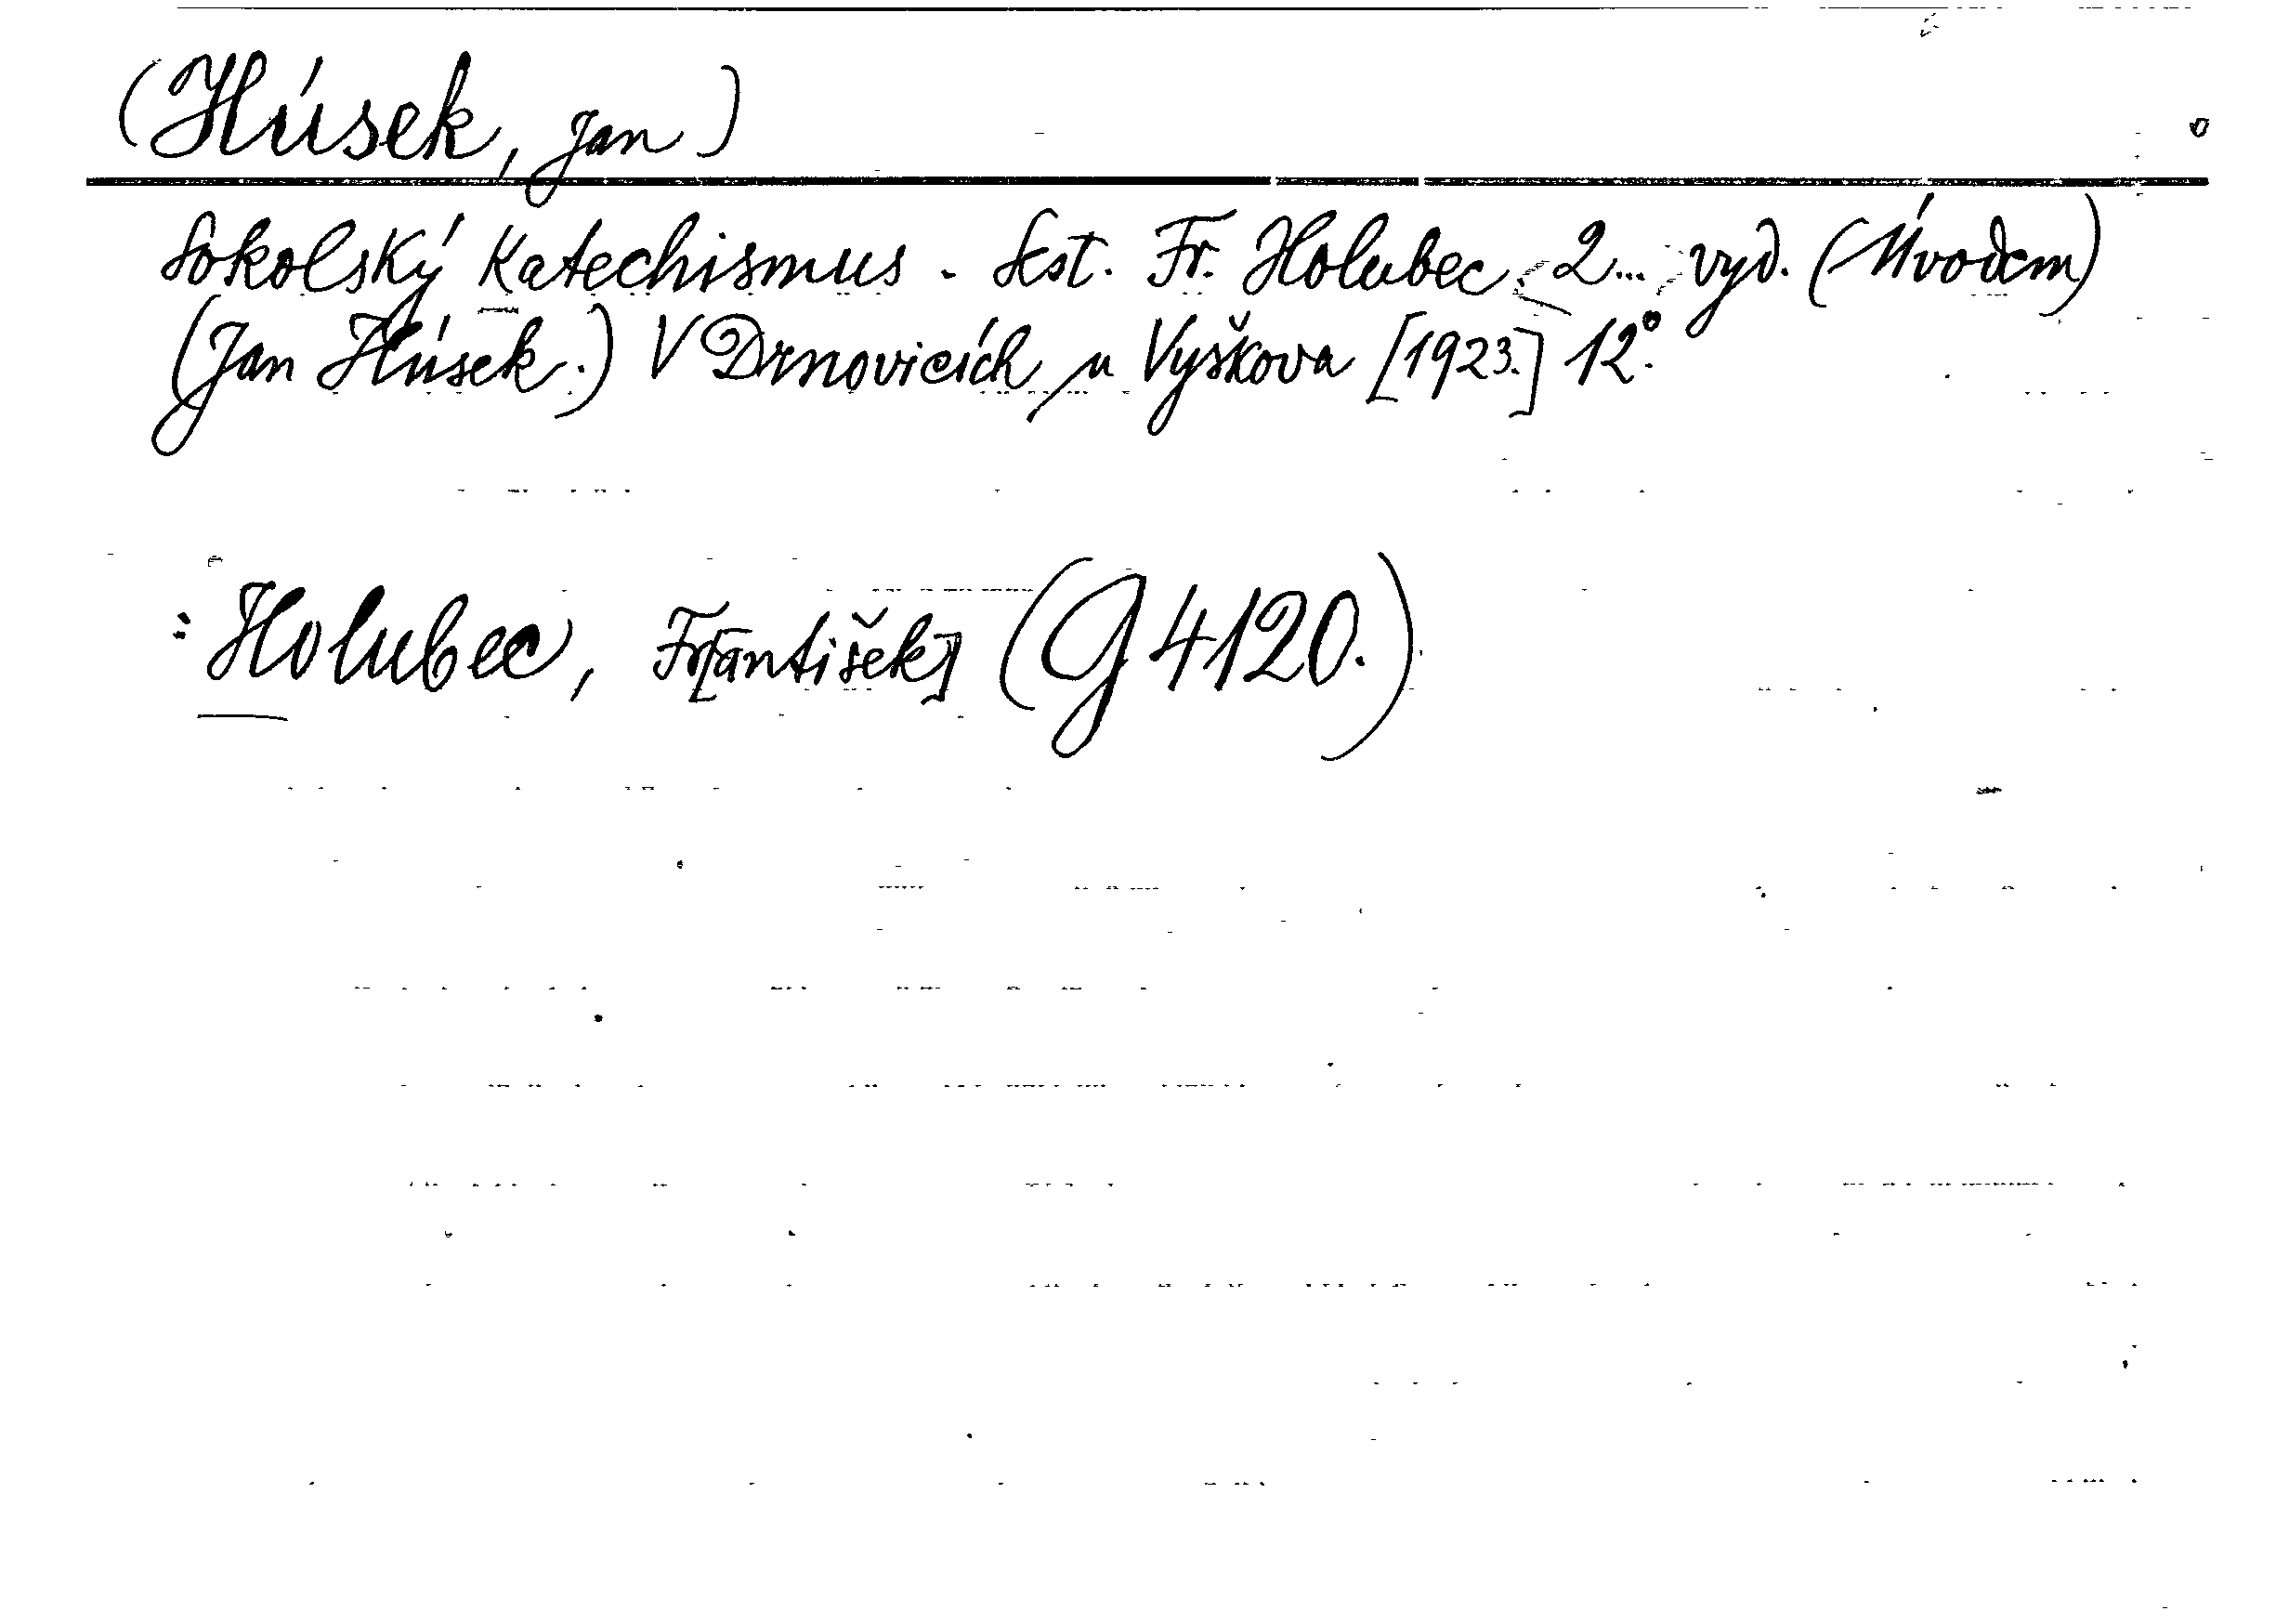 (Húsek, Jan)
Sokolský Katechismus. Sest. Fr. Holubec. 2... vyd. (Úvodem)
(Jan Húsek.) V Drnovicích u Vyškova [1923.] 12°.
: Holubec, Fr[antišek] (G 4120.)